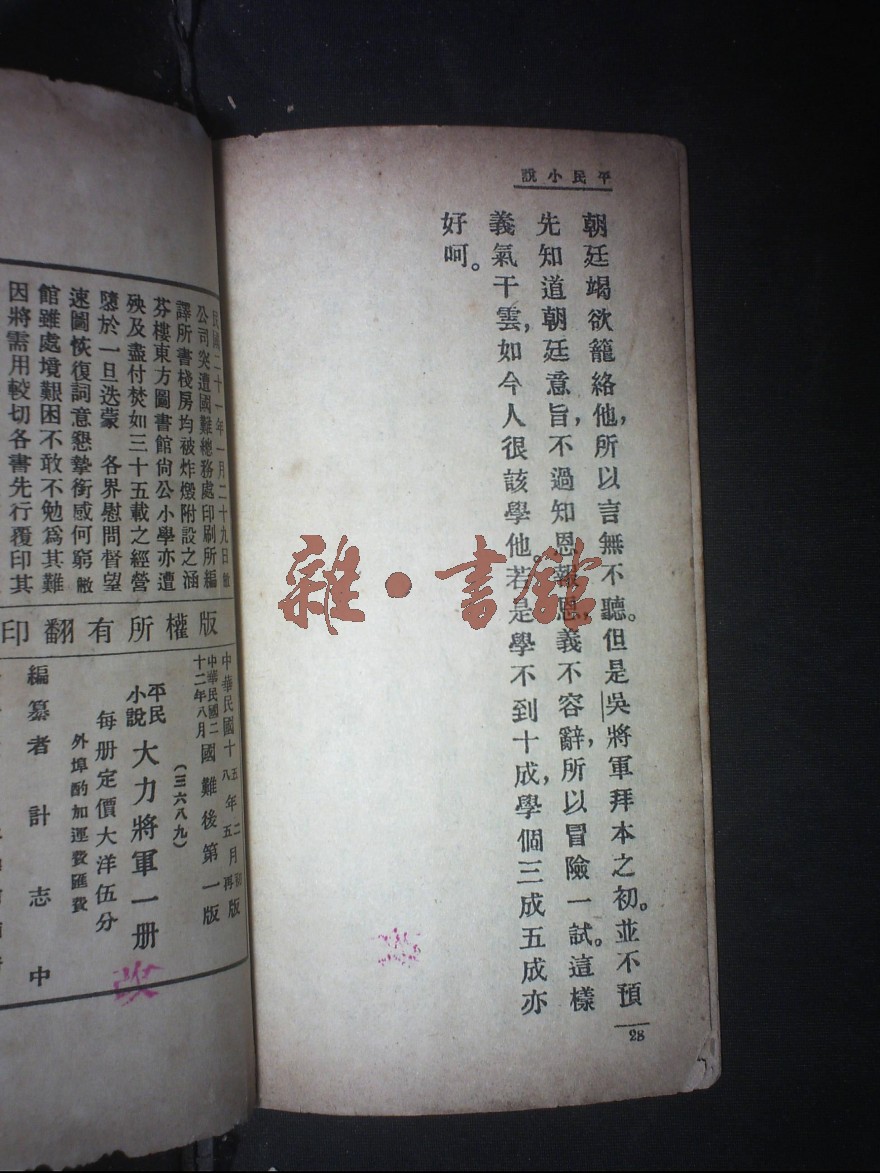 平民小說
朝廷竭欲籠絡他，所以言無不聽。但是吳將軍拜本之初。並不預
先知道朝廷意旨，不過知恩報恩，義不容辭，所以冒險一試。這樣
義氣干雲，如今人很該學他。若是學不到十成，學個三成五成亦
好呵。
28
雜·書館
民國二十一年一月二十九日敝
公司突遭國難總務處印刷所編
譯所書棧房均被炸燬附設之涵
芬樓東方圖書館尙公小學亦遭
殃及盡付焚如三十五載之經營
隳於一旦迭蒙 各界慰問督望
速圖恢復詞意懇摯銜感何窮敝
館雖處境艱困不敢不勉爲其難
因將需用較切各書先行覆印其
版權所有翻印
中華民國十五年二月初版
八年五月再版
中華民國二十二年八月國難後第一版
（三六八九）
平民小說 大力將軍一册
每册定價大洋伍分
外埠酌加運費匯費
編纂者 計志中
改